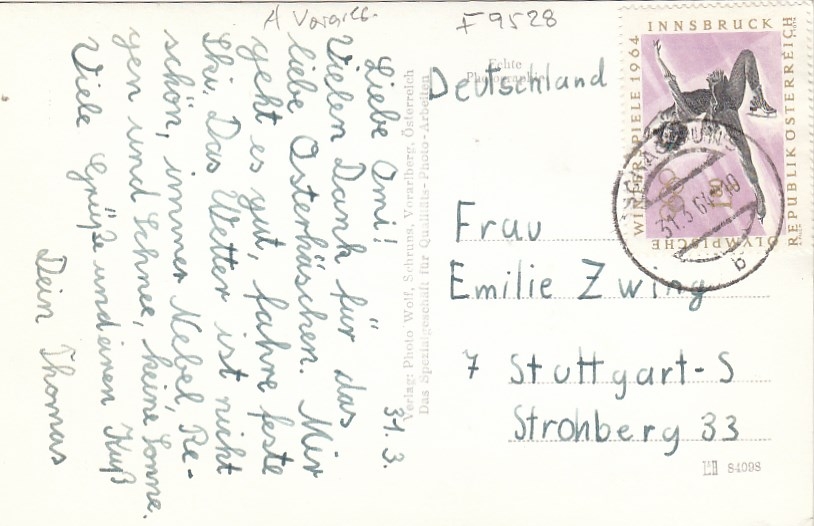 A Vorarlb.
F9528
31.3.
Liebe Omi!
Vielen Dank für das
liebe Osterhäschen. Mir
geht es gut, fahre feste
Ski. Das Wetter ist nicht
schön, immer Nebel, Re-
gen und Schnee, keine Sonne.
Viele Grüße und einen Kuß
Dein Thomas
Verlag: Photo Wolf, Schruns, Vorarlberg, Österreich
Das Spezialgeschäft für Qualitäts-Photo-Arbeiten
Echte
Photographie
Deutschland
Frau
Emilie Zwing
7 Stuttgart-S
Strohberg 33
84098
OLYMPISCHE WINTERSPIELE 1964 INNSBRUCK
REPUBLIK ÖSTERREICH
1.80
SCHRUNS
31.3.64
b